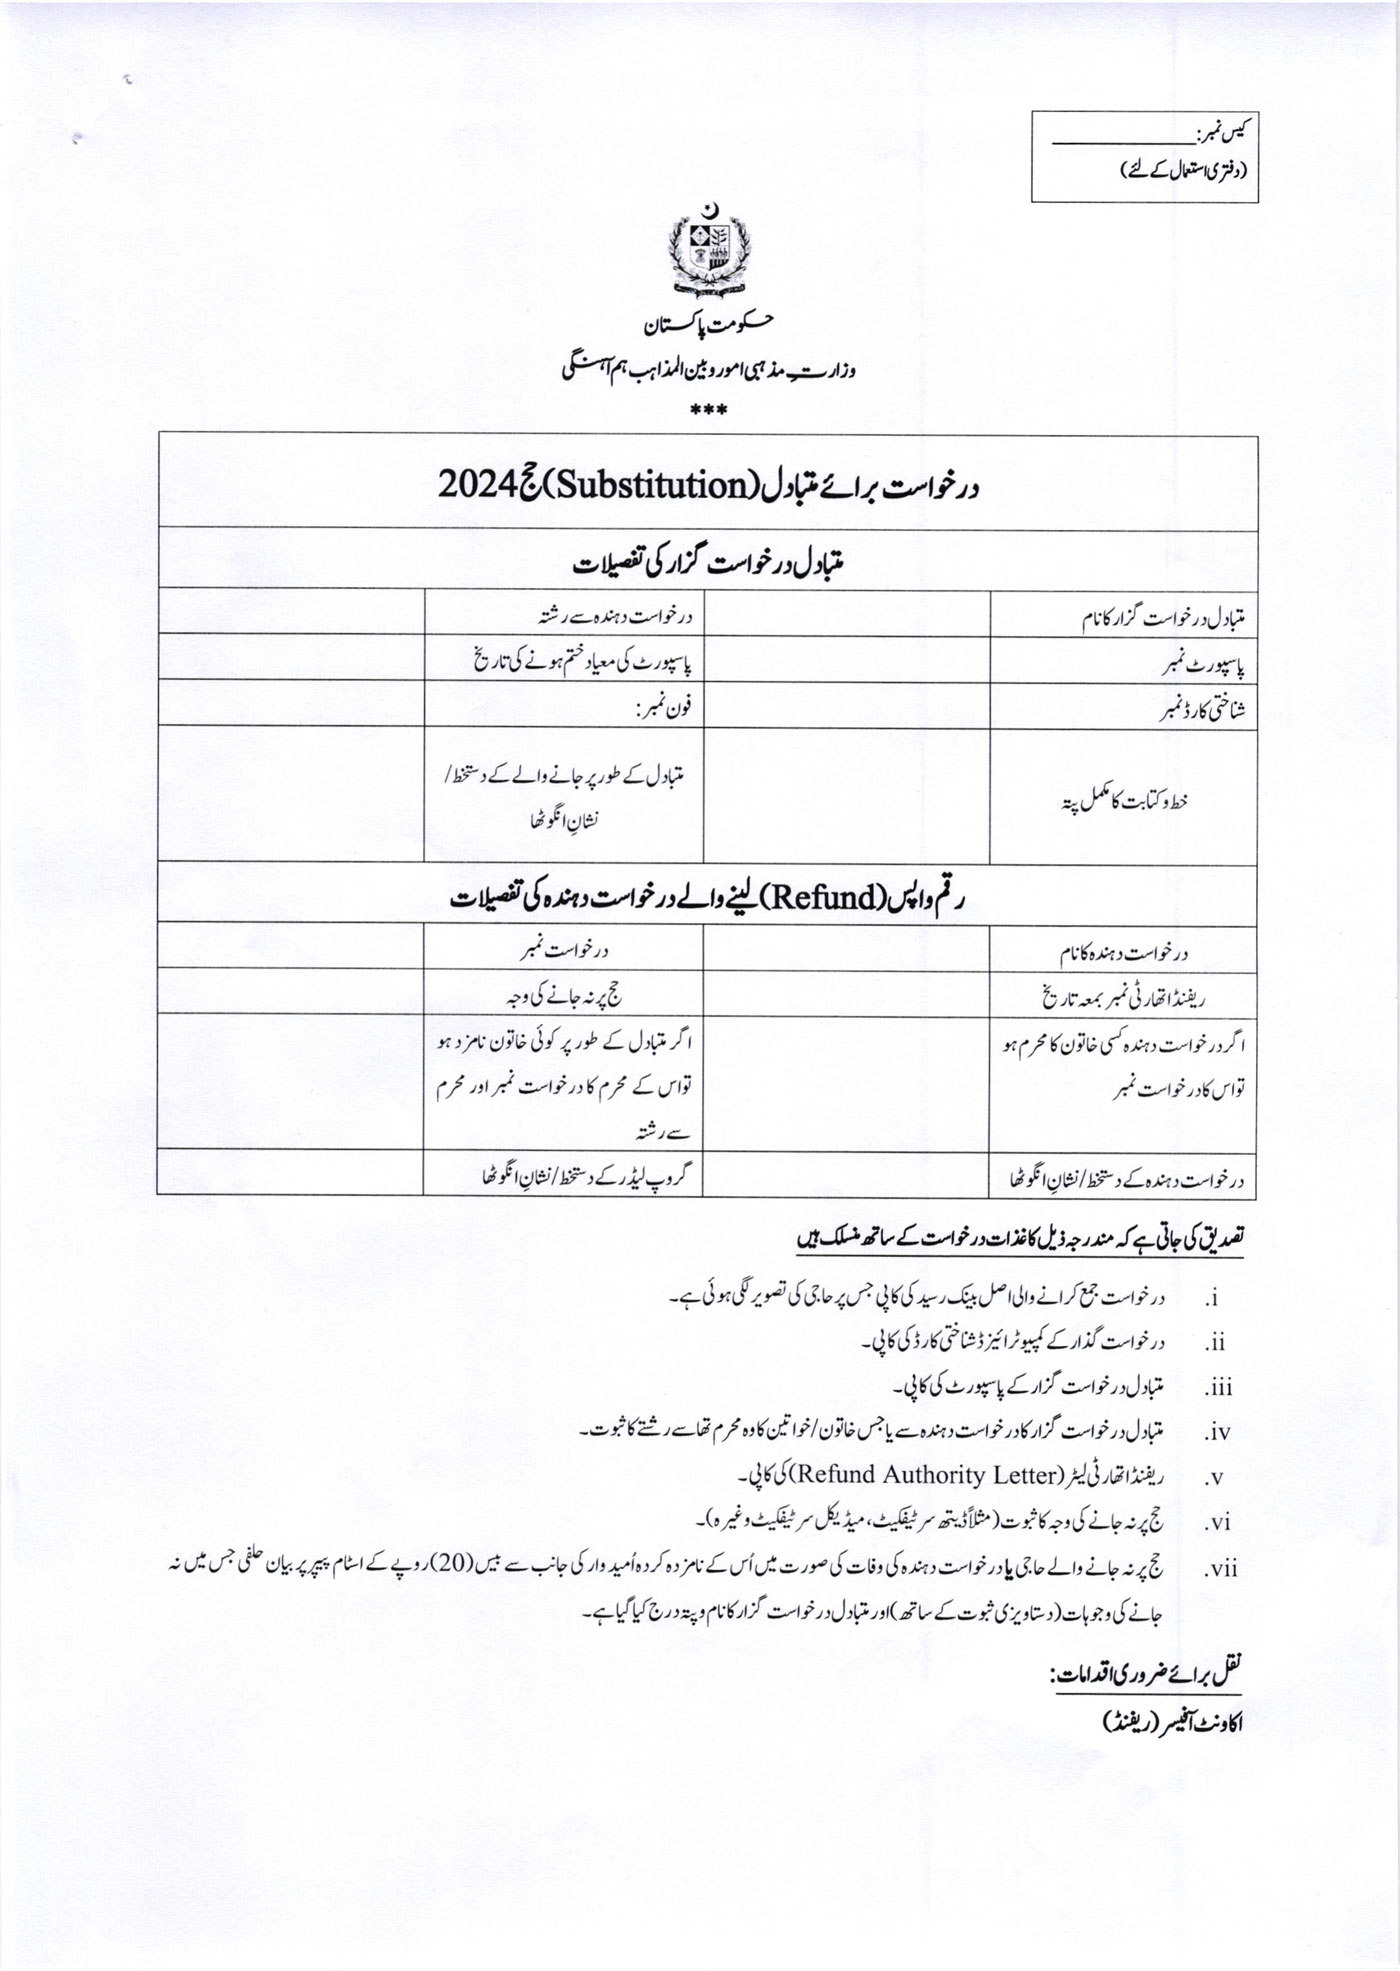 کیس نمبر:
(دفتری استعمال کے لئے)
حکومت پاکستان
وزارتِ مذہبی امور و بین المذاہب ہم آہنگی
***
درخواست برائے متبادل (Substitution) حج 2024
متبادل درخواست گزار کی تفصیلات
متبادل درخواست گزار کا نام
درخواست دہندہ سے رشتہ
پاسپورٹ نمبر
پاسپورٹ کی معیاد ختم ہونے کی تاریخ
شناختی کارڈ نمبر
فون نمبر:
خط و کتابت کا مکمل پتہ
متبادل کے طور پر جانے والے کے دستخط/
نشانِ انگوٹھا
رقم واپس (Refund) لینے والے درخواست دہندہ کی تفصیلات
درخواست دہندہ کا نام
درخواست نمبر
ریفنڈ اتھارٹی نمبر بمعہ تاریخ
حج پر نہ جانے کی وجہ
اگر درخواست دہندہ کسی خاتون کا محرم ہو
تو اس کا درخواست نمبر
اگر متبادل کے طور پر کوئی خاتون نامزد ہو
تو اس کے محرم کا درخواست نمبر اور محرم
سے رشتہ
درخواست دہندہ کے دستخط/نشانِ انگوٹھا
گروپ لیڈر کے دستخط/نشانِ انگوٹھا
تصدیق کی جاتی ہے کہ مندرجہ ذیل کاغذات درخواست کے ساتھ منسلک ہیں
i. درخواست جمع کرانے والی اصل بینک رسید کی کاپی جس پر حاجی کی تصویر لگی ہوئی ہے۔
ii. درخواست گذار کے کمپیوٹرائیزڈ شناختی کارڈ کی کاپی۔
iii. متبادل درخواست گزار کے پاسپورٹ کی کاپی۔
iv. متبادل درخواست گزار کا درخواست دہندہ سے یا جس خاتون/خواتین کا وہ محرم تھا سے رشتے کا ثبوت۔
v. ریفنڈ اتھارٹی لیٹر (Refund Authority Letter) کی کاپی۔
vi. حج پر نہ جانے کی وجہ کا ثبوت (مثلاً ڈیتھ سرٹیفکیٹ، میڈیکل سرٹیفکیٹ وغیرہ)۔
vii. حج پر نہ جانے والے حاجی یا درخواست دہندہ کی وفات کی صورت میں اُس کے نامزد کردہ اُمیدوار کی جانب سے بیس (20) روپے کے اسٹام پیپر پر بیان حلفی جس میں نہ
جانے کی وجوہات (دستاویزی ثبوت کے ساتھ) اور متبادل درخواست گزار کا نام و پتہ درج کیا گیا ہے۔
نقل برائے ضروری اقدامات:
اکاونٹ آفیسر (ریفنڈ)